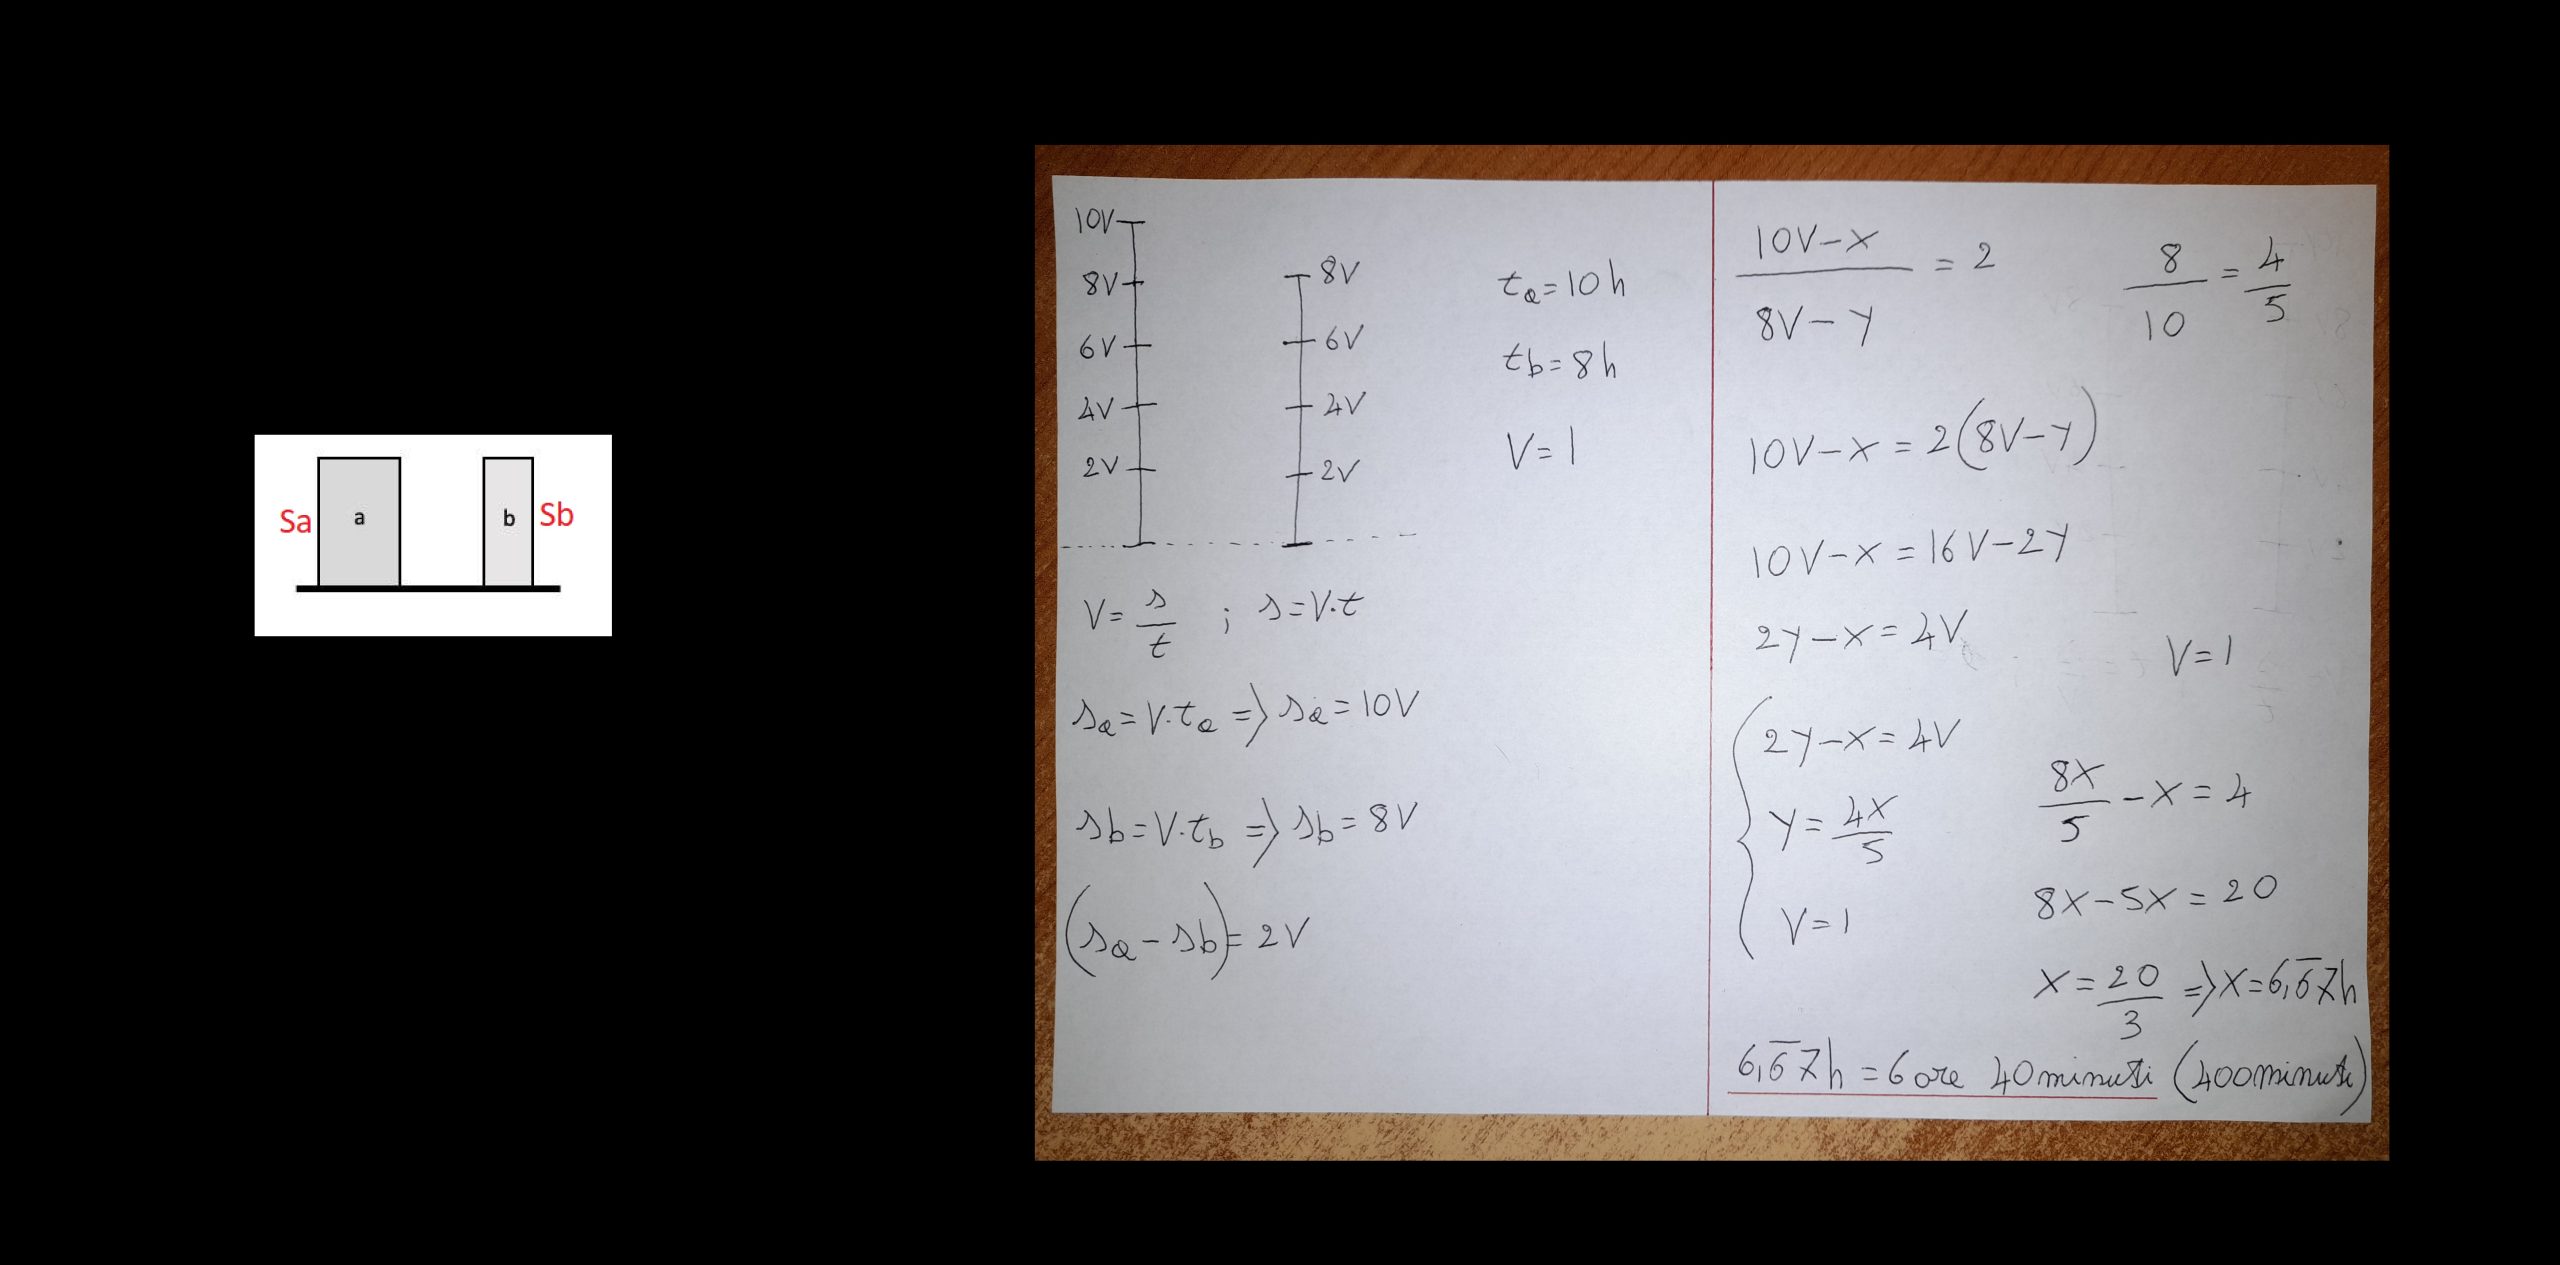 Sa a b Sb
10V
8V
6V
4V
2V
8V
6V
4V
2V
ta=10h
tb=8h
V=1
V=s/t ; s=V.t
sa=V.ta => sa=10V
sb=V.tb => sb=8V
(sa-sb)=2V
10V-x/8V-y = 2
8/10 = 4/5
10V-x=2(8V-y)
10V-x=16V-2y
2y-x=4V
V=1
2y-x=4V
y=4x/5
V=1
8x/5-x=4
8x-5x=20
x=20/3 => x=6,6̅7h
6,6̅7h=6 ore 40 minuti (400 minuti)